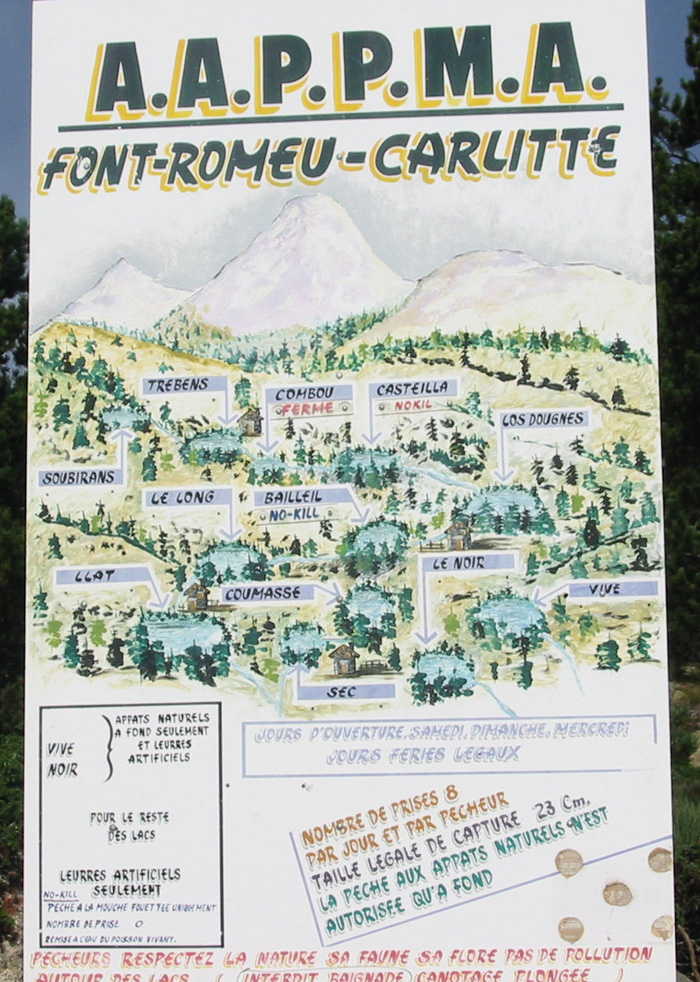 A.A.P.P.M.A.
FONT-ROMEU-CARLITTE
TREBENS
COMBOU
FERME
CASTEILLA
NOKIL
LOS DOUGNES
SOUBIRANS
LE LONG
BAILLEIL
NO-KILL
LLAT
COUMASSE
LE NOIR
VIVE
SEC
VIVE
NOIR
APPATS NATURELS
A FOND SEULEMENT
ET LEURRES
ARTIFICIELS
POUR LE RESTE
DES LACS
LEURRES ARTIFICIELS
SEULEMENT
NO-KILL
PECHE A LA MOUCHE FOUETTEE UNIQUEMENT
NOMBRE DE PRISE O
REMISE A L'EAU DU POISSON VIVANT.
JOURS D'OUVERTURE. SAMEDI. DIMANCHE. MERCREDI
JOURS FERIES LEGAUX
NOMBRE DE PRISES 8
PAR JOUR ET PAR PECHEUR
TAILLE LEGALE DE CAPTURE 23 Cm.
LA PECHE AUX APPATS NATURELS N'EST
AUTORISEE QU'A FOND
PECHEURS RESPECTEZ LA NATURE SA FAUNE SA FLORE PAS DE POLLUTION
AUTOUR DES LACS ( INTERDIT BAIGNADE CANOTAGE PLONGEE )